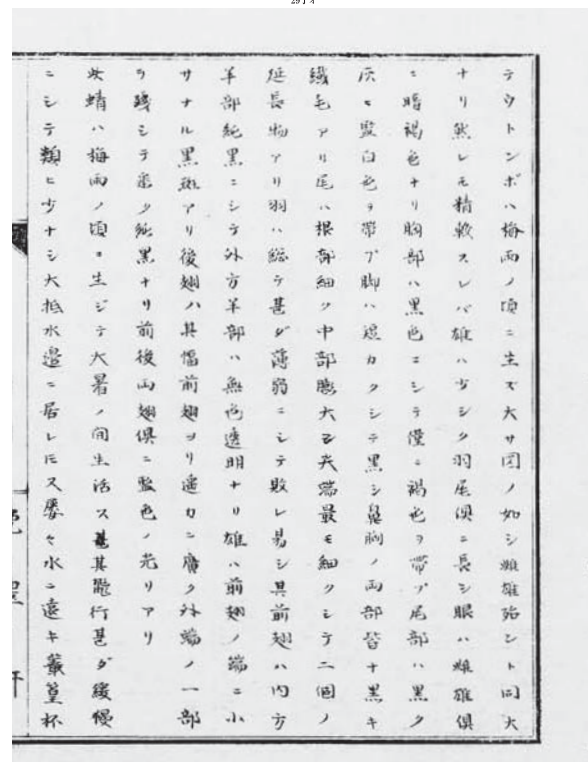 29丁オ
テウトンボハ梅雨ノ頃ニ生ズ大サ図ノ如シ雌雄殆ント同大
ナリ然レモ精較スレバ雄ハ少シク羽尾倶ニ長シ眼ハ雌雄倶
ニ暗褐色ナリ胸部ハ黒色ニシテ僅ニ褐色ヲ帯ブ尾部ハ黒ク
灰ニ藍白色ヲ帯ブ脚ハ短カクシテ黒シ鼻胸ノ両部皆ナ黒キ
繊毛アリ尾ハ根部細ク中部膨大乄尖端最モ細クシテ二個ノ
延長物アリ羽ハ総テ甚ダ薄弱ニシテ敗レ易シ其前翅ハ内方
半部純黒ニシテ外方半部ハ無色透明ナリ雄ハ前翅ノ端ニ小
サナル黒斑アリ後翅ハ其幅前翅ヨリ遥カニ廣ク外端ノ一部
ヲ残シテ悉ク純黒ナリ前後両翅倶ニ藍色ノ光リアリ
此蜻ハ梅雨ノ頃ニ生ジテ大暑ノ間生活ス其飛行甚ダ緩慢
ニシテ類ヒ少ナシ大抵水邉ニ居レ𪜈ス屡々水ニ遠キ叢篁杯